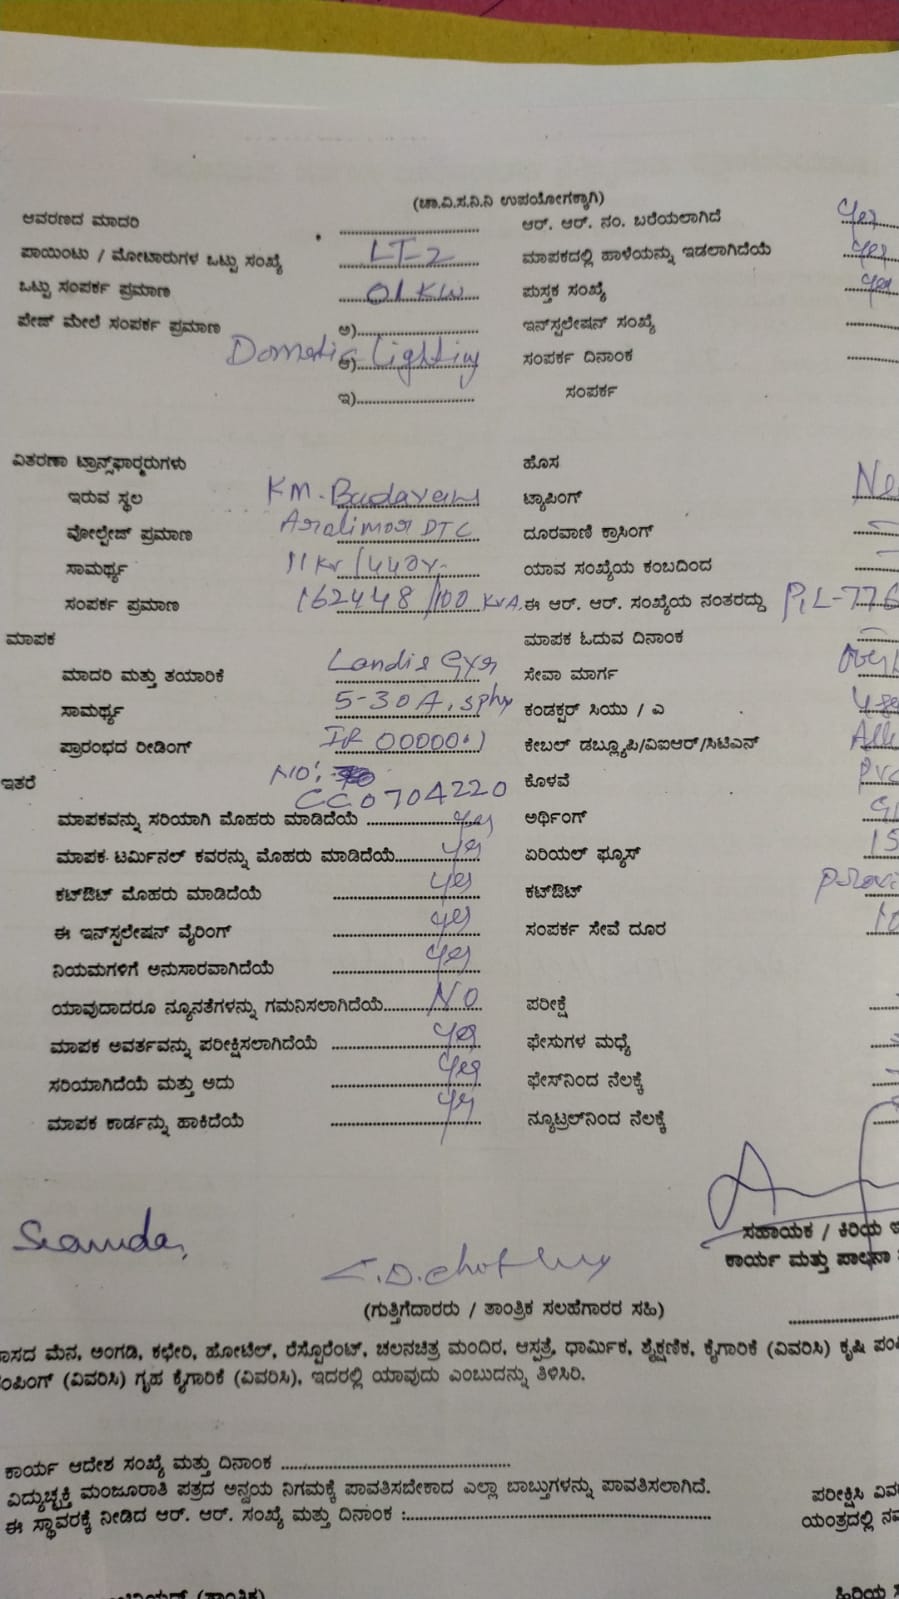 (ಚಾ.ವಿ.ಸ.ನಿ.ನಿ ಉಪಯೋಗಕ್ಕಾಗಿ)
ಆವರಣದ ಮಾದರಿ ಆರ್. ಆರ್. ನಂ. ಬರೆಯಲಾಗಿದೆ yes
ಪಾಯಿಂಟು / ಮೋಟಾರುಗಳ ಒಟ್ಟು ಸಂಖ್ಯೆ LT-2 ಮಾಪಕದಲ್ಲಿ ಹಾಳೆಯನ್ನು ಇಡಲಾಗಿದೆಯೆ yes
ಒಟ್ಟು ಸಂಪರ್ಕ ಪ್ರಮಾಣ 01 KW ಪುಸ್ತಕ ಸಂಖ್ಯೆ yes
ಪೇಜ್ ಮೇಲೆ ಸಂಪರ್ಕ ಪ್ರಮಾಣ ಅ) ಇನ್‌ಸ್ಟಲೇಷನ್ ಸಂಖ್ಯೆ
Dometic Lighting ಆ) ಸಂಪರ್ಕ ದಿನಾಂಕ
ಇ) ಸಂಪರ್ಕ
ವಿತರಣಾ ಟ್ರಾನ್ಸ್‌ಫಾರ್‍ಮರುಗಳು ಹೊಸ
ಇರುವ ಸ್ಥಲ KM. ಟ್ಯಾಪಿಂಗ್
ವೋಲ್ಟೇಜ್ ಪ್ರಮಾಣ Aralimara DTC ದೂರವಾಣಿ ಕ್ರಾಸಿಂಗ್
ಸಾಮರ್ಥ್ಯ 11Kv/440v ಯಾವ ಸಂಖ್ಯೆಯ ಕಂಬದಿಂದ
ಸಂಪರ್ಕ ಪ್ರಮಾಣ 162448/100 KVA ಈ ಆರ್. ಆರ್. ಸಂಖ್ಯೆಯ ನಂತರದ್ದು
ಮಾಪಕ ಮಾಪಕ ಓದುವ ದಿನಾಂಕ
ಮಾದರಿ ಮತ್ತು ತಯಾರಿಕೆ Landis Gyr ಸೇವಾ ಮಾರ್ಗ
ಸಾಮರ್ಥ್ಯ 5-30A, sphy ಕಂಡಕ್ಟರ್ ಸಿಯು / ಎ
ಪ್ರಾರಂಭದ ರೀಡಿಂಗ್ IR 00000.1 ಕೇಬಲ್ ಡಬ್ಲ್ಯೂಪಿ/ವಿಐಆರ್/ಸಿಟಿಎನ್
ಇತರೆ NO: ಕೊಳವೆ
CC0704220
ಮಾಪಕವನ್ನು ಸರಿಯಾಗಿ ಮೊಹರು ಮಾಡಿದೆಯೆ yes ಅರ್ಥಿಂಗ್
ಮಾಪಕ ಟರ್ಮಿನಲ್ ಕವರನ್ನು ಮೊಹರು ಮಾಡಿದೆಯೆ yes ಏರಿಯಲ್ ಫ್ಯೂಸ್
ಕಟ್‌ಔಟ್ ಮೊಹರು ಮಾಡಿದೆಯೆ yes ಕಟ್‌ಔಟ್
ಈ ಇನ್‌ಸ್ಟಲೇಷನ್ ವೈರಿಂಗ್ yes ಸಂಪರ್ಕ ಸೇವೆ ದೂರ
ನಿಯಮಗಳಿಗೆ ಅನುಸಾರವಾಗಿದೆಯೆ yes
ಯಾವುದಾದರೂ ನ್ಯೂನತೆಗಳನ್ನು ಗಮನಿಸಲಾಗಿದೆಯೆ NO ಪರೀಕ್ಷೆ
ಮಾಪಕ ಅವರ್ತವನ್ನು ಪರೀಕ್ಷಿಸಲಾಗಿದೆಯೆ yes ಫೇಸುಗಳ ಮಧ್ಯೆ
ಸರಿಯಾಗಿದೆಯೆ ಮತ್ತು ಅದು yes ಫೇಸ್‌ನಿಂದ ನೆಲಕ್ಕೆ
ಮಾಪಕ ಕಾರ್ಡನ್ನು ಹಾಕಿದೆಯೆ yes ನ್ಯೂಟ್ರಲ್‌ನಿಂದ ನೆಲಕ್ಕೆ
ಸಹಾಯಕ / ಕಿರಿಯ
ಕಾರ್ಯ ಮತ್ತು ಪಾಲನಾ
(ಗುತ್ತಿಗೆದಾರರು / ತಾಂತ್ರಿಕ ಸಲಹೆಗಾರರ ಸಹಿ)
ಮೆನ, ಅಂಗಡಿ, ಕಛೇರಿ, ಹೋಟೆಲ್, ರೆಸ್ಟೊರೆಂಟ್, ಚಲನಚಿತ್ರ ಮಂದಿರ, ಆಸ್ಪತ್ರೆ, ಧಾರ್ಮಿಕ, ಶೈಕ್ಷಣಿಕ, ಕೈಗಾರಿಕೆ (ವಿವರಿಸಿ) ಕೃಷಿ
(ವಿವರಿಸಿ) ಗೃಹ ಕೈಗಾರಿಕೆ (ವಿವರಿಸಿ), ಇದರಲ್ಲಿ ಯಾವುದು ಎಂಬುದನ್ನು ತಿಳಿಸಿರಿ.
ಕಾರ್ಯ ಆದೇಶ ಸಂಖ್ಯೆ ಮತ್ತು ದಿನಾಂಕ
ವಿದ್ಯುಚ್ಛಕ್ತಿ ಮಂಜೂರಾತಿ ಪತ್ರದ ಅನ್ವಯ ನಿಗಮಕ್ಕೆ ಪಾವತಿಸಬೇಕಾದ ಎಲ್ಲಾ ಬಾಬ್ತುಗಳನ್ನು ಪಾವತಿಸಲಾಗಿದೆ. ಪರೀಕ್ಷಿಸಿ
ಈ ಸ್ಥಾವರಕ್ಕೆ ನೀಡಿದ ಆರ್. ಆರ್. ಸಂಖ್ಯೆ ಮತ್ತು ದಿನಾಂಕ : ಯಂತ್ರದಲ್ಲಿ